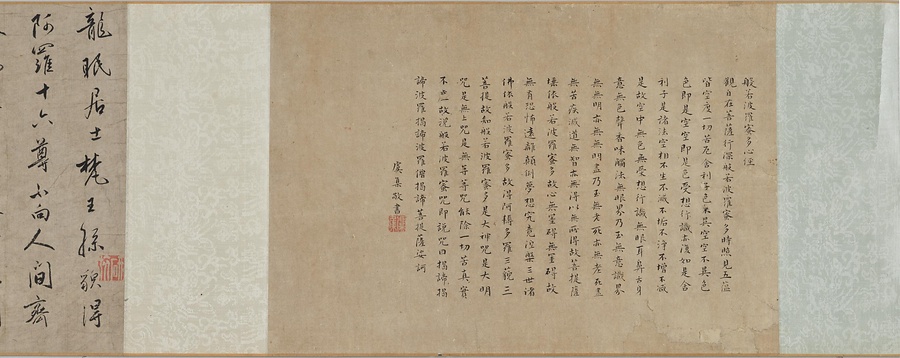 般若波羅蜜多心經
觀自在菩薩行深般若波羅蜜多時照見五蘊
皆空度一切苦厄舍利子色不異空空不異色
色即是空空即是色受想行識亦復如是舍
利子是諸法空相不生不滅不垢不淨不增不減
是故空中無色無受想行識無眼耳鼻舌身
意無色聲香味觸法無眼界乃至無意識界
無無明亦無無明盡乃至無老死亦無老死盡
無苦集滅道無智亦無得以無所得故菩提薩
埵依般若波羅蜜多故心無罣礙無罣礙故
無有恐怖遠離顛倒夢想究竟涅槃三世諸
佛依般若波羅蜜多故得阿耨多羅三藐三
菩提故知般若波羅蜜多是大神咒是大明
咒是無上咒是無等等咒能除一切苦真實
不虛故說般若波羅蜜咒即說咒曰揭諦揭
諦波羅揭諦波羅僧揭諦菩提薩婆訶
虞集敬書
龍眠居士梵王孫貌得
阿羅十六尊不向人間齋